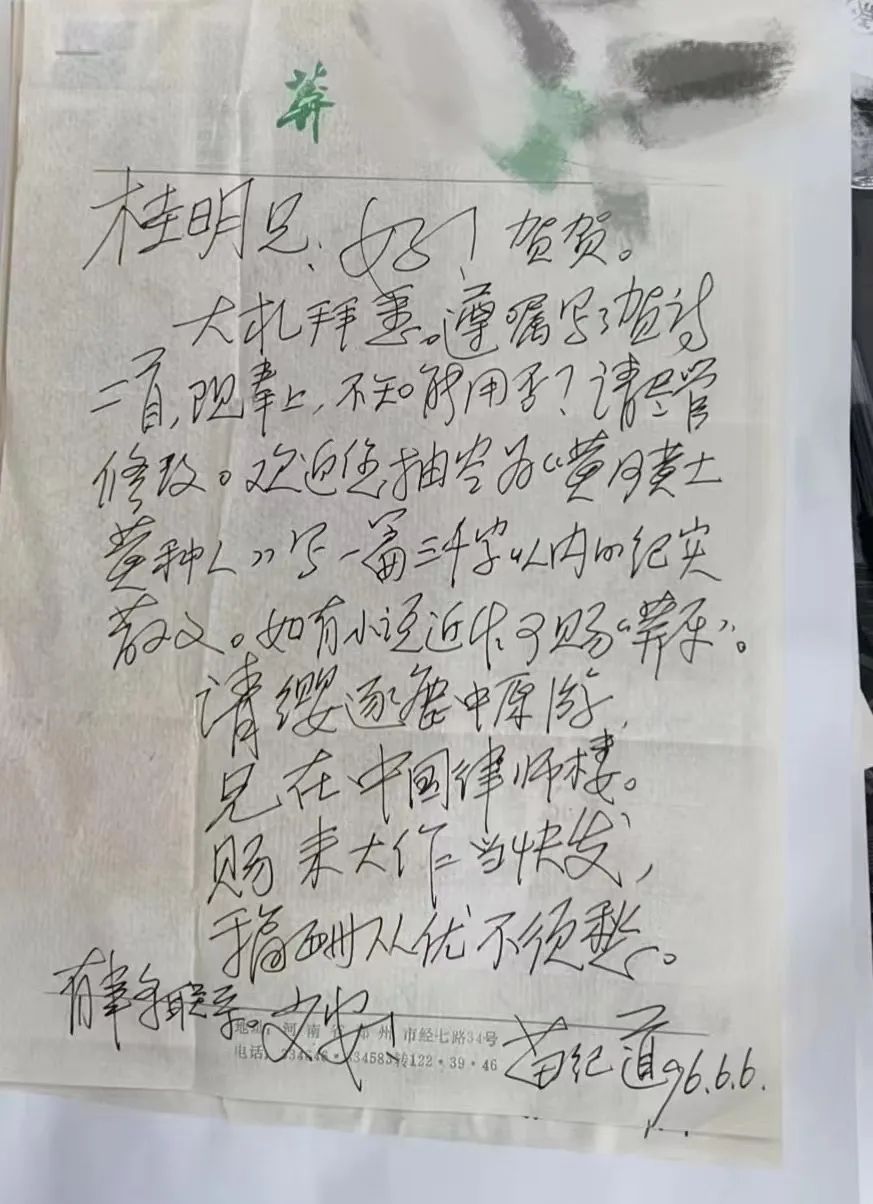 莽
桂明兄:好!贺贺。
大札拜悉。遵嘱写了贺诗
二首,现奉上,不知能用否?请尽管
修改。欢迎您抽空为“黄河黄土
黄种人”写一篇三千字以内的纪实
散文。如有小说近作可赐“莽原”。
请缨逐鹿中原游,
兄在中国律师楼。
赐来大作当快发,
稿酬从优不须愁。
有事多联系。文安!
地址 河南省郑州市经七路34号
电话 334583转122·39·46
苗纪道 96.6.6.